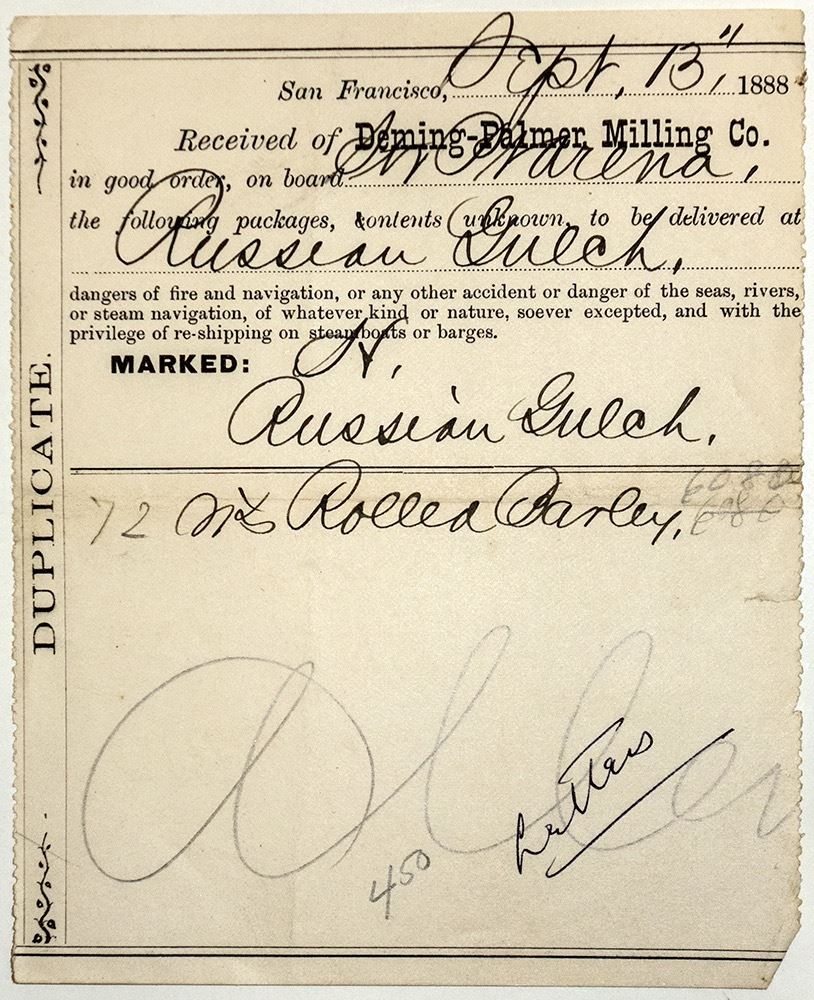 San Francisco, Sept. 13", 1888
Received of Deming-Palmer Milling Co.
in good order, on board Str Pt Arena,
the following packages, contents unknown, to be delivered at
Russian Gulch.
dangers of fire and navigation, or any other accident or danger of the seas, rivers,
or steam navigation, of whatever kind or nature, soever excepted, and with the
privilege of re-shipping on steamboats or barges.
MARKED: H,
Russian Gulch.
72 sks Rolled Barley.
Allen
Letters
450
DUPLICATE.